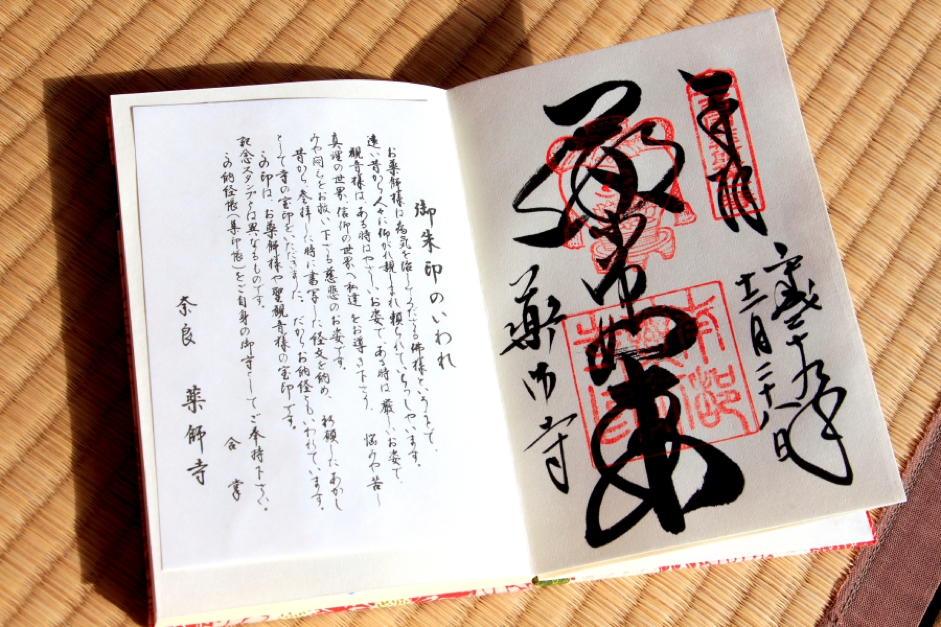 奉拝
平成二十九年
十二月二十八日
薬師如来
薬師寺
御朱印のいわれ
お薬師様は病気を治して下さる佛様ということで、
遠い昔から人々に仰がれ親しまれ頼られていらっしゃいます。
観音様は、ある時はやさしいお姿で、ある時は厳しいお姿で
真理の世界、信仰の世界へ私達をお導き下さり、悩みや苦し
みや悶えをお救い下さる慈悲のお姿です。
昔から、参拝した時に書写した経文を納め、祈願したあかし
として寺の宝印をいただきました。だからお納経ともいわれています。
この印は、お薬師様や聖観音様の宝印です。
記念スタンプとは異なるものです。
この納経帳(集印帳)をご自身の御守としてご奉持下さい。
合掌
奈良 薬師寺